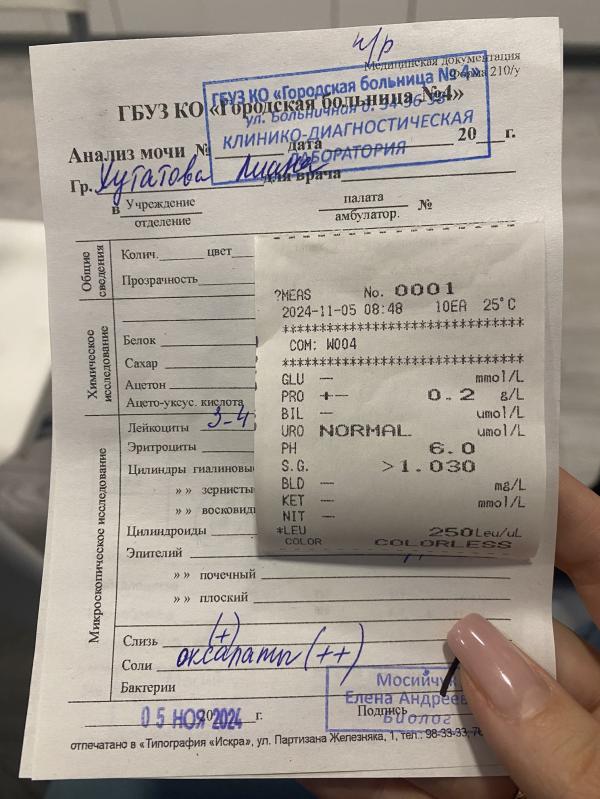 ч/р
Медицинская документация
Форма 210/у
ГБУЗ КО «Городская больница №4»
ГБУЗ КО «Городская больница № 4»
ул. Больничная
КЛИНИКО-ДИАГНОСТИЧЕСКАЯ
ЛАБОРАТОРИЯ
Анализ мочи № дата 20 г.
Гр. Хутатова Лиана для врача
в Учреждение
отделение
палата
амбулатор.
№
Общие сведения
Колич. цвет
Прозрачность
Химическое исследование
Белок
Сахар
Ацетон
Ацето-уксус. кислота
Микроскопическое исследование
Лейкоциты 3-4
Эритроциты
Цилиндры гиалиновы
» » зернисты
» » восковид
Цилиндроиды
Эпителий
» » почечный
» » плоский
Слизь (+)
Соли оксалаты (++)
Бактерии
05 НОЯ 2024 г.
Подпись
Мосийчук
Елена Андреев
Биолог
отпечатано в «Типография «Искра», ул. Партизана Железняка, 1, тел.: 98-33-33, 76
?MEAS No. 0001
2024-11-05 08:48 10EA 25°C
********************************
COM: W004
********************************
GLU — mmol/L
PRO +- 0.2 g/L
BIL — umol/L
URO NORMAL umol/L
PH 6.0
S.G. >1.030
BLD — mg/L
KET — mmol/L
NIT —
*LEU 250Leu/uL
COLOR COLORLESS